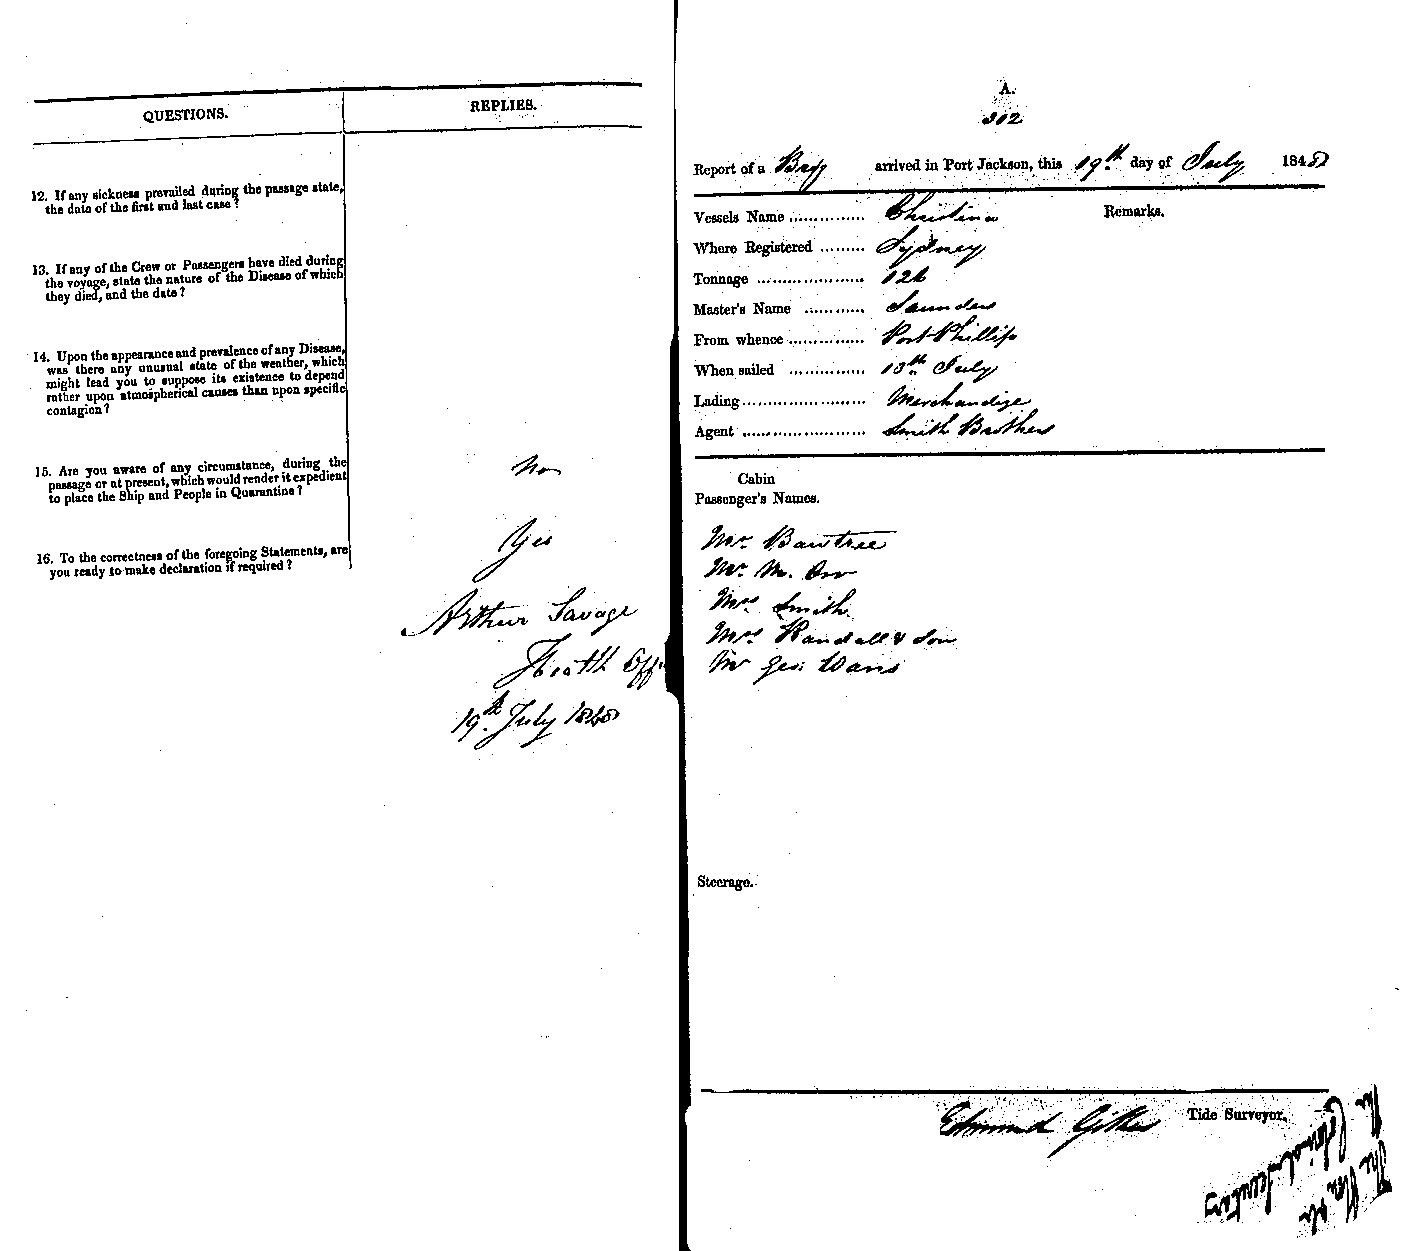 QUESTIONS. REPLIES.
12. If any sickness prevailed during the passage state,
the date of the first and last case?
13. If any of the Crew or Passengers have died during
the voyage, state the nature of the Disease of which
they died, and the date?
14. Upon the appearance and prevalence of any Disease,
was there any unusual state of the weather, which
might lead you to suppose its existence to depend
rather upon atmospherical causes than upon specific
contagion?
15. Are you aware of any circumstance, during the
passage or at present, which would render it expedient
to place the Ship and People in Quarantine?
No
16. To the correctness of the foregoing Statements, are
you ready to make declaration if required?
Yes
Arthur Savage
Health Off
19th July 1848
A.
302
Report of a Brig arrived in Port Jackson, this 19th day of July 1848
Vessels Name .............. Christina Remarks.
Where Registered ......... Sydney
Tonnage ..................... 126
Master's Name ............ Saunders
From whence ............... Port Phillip
When sailed ............... 13th July
Lading........................ Merchandize
Agent ........................ Smith Brothers
Cabin
Passenger's Names.
Mr. Bawtree
Mr. M. Orr
Mrs Smith
Mrs Randall & Son
Mr Geo.
Steerage.
Edmund Tide Surveyor.
The Hon. the
Colonial Secretary